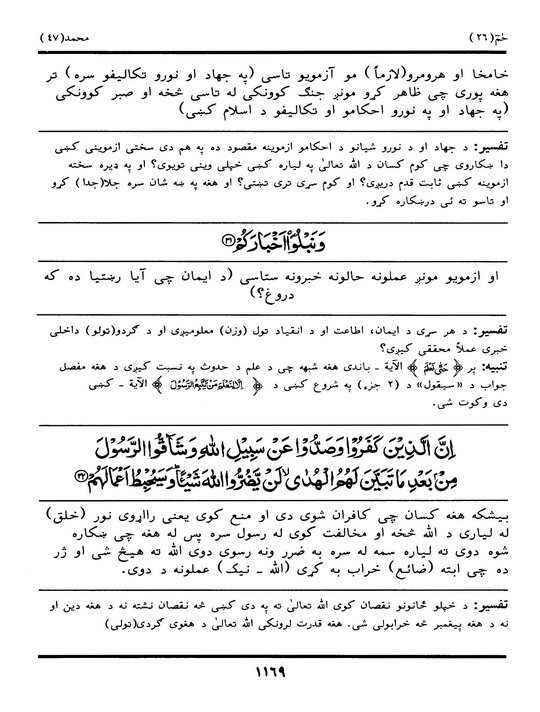 حٰمٓ (٢٦) محمد(٤٧)
خامخا او هرومرو(لازماً) مو آزمویو تاسی (په جهاد او نورو تکالیفو سره) تر
هغه پوری چی ظاهر کړو مونږ جنګ کوونکی له تاسی څخه او صبر کوونکی
(په جهاد او په نورو احکامو او تکالیفو د اسلام کښی)
تفسیر: د جهاد او د نورو شیانو د احکامو ازموینه مقصود ده په هم دی سختی ازموینی کښی
دا ښکاروی چی کوم کسان د الله تعالیٰ په لیاره کښی خپلی وینی تویوی؟ او په ډیره سخته
ازموینه کښی ثابت قدم دریږی؟ او کوم سړی تری تښتی؟ او هغه په ښه شان سره جلا(جدا) کړو
او تاسو ته ئی درښکاره کړو.
وَنَبْلُوَا۟ اَخْبَارَكُمْ ﴿٣١﴾
او ازمویو مونږ عملونه حالونه خبرونه ستاسی (د ایمان چی آیا رښتیا ده که
دروغ؟)
تفسیر: د هر سړی د ایمان، اطاعت او د انقیاد تول (وزن) معلومیږی او د ګردو(تولو) داخلی
خبری عملاً محققی کیږی؟
تنبیه: پر ﴿ حَتّٰی نَعْلَمَ ﴾ الآیة ـ باندی هغه شبهه چی د علم د حدوث په نسبت کیږی د هغه مفصل
جواب د «سیقول» د (٢ جزء) په شروع کښی د ﴿ اِلَّا لِنَعْلَمَ مَنْ یَّتَّبِعُ الرَّسُوْلَ ﴾ الآیة ـ کښی
دی وکوت شی.
اِنَّ الَّذِيْنَ كَفَرُوْا وَصَدُّوْا عَنْ سَبِيْلِ اللّٰهِ وَشَآقُّوا الرَّسُوْلَ
مِنْۢ بَعْدِ مَا تَبَيَّنَ لَهُمُ الْهُدٰى لَنْ يَّضُرُّوا اللّٰهَ شَيْـًٔا وَسَيُحْبِطُ اَعْمَالَهُمْ ﴿٣٢﴾
بیشکه هغه کسان چی کافران شوی دی او منع کوی یعنی رااړوی نور (خلق)
له لیاری د الله څخه او مخالفت کوی له رسول سره پس له هغه چی ښکاره
شوه دوی ته لیاره سمه له سره به ضرر ونه رسوی دوی الله ته هیڅ شی او ژر
ده چی ابته (ضائع) خراب به کړی (الله ـ نیک) عملونه د دوی.
تفسیر: د خپلو ځانونو نقصان کوی الله تعالیٰ ته په دی کښی څه نقصان نشته نه د هغه دین او
نه د هغه پیغمبر څه خرابولی شی. هغه قدرت لرونکی الله تعالیٰ د هغوی ګردی(تولی)
١١٦٩